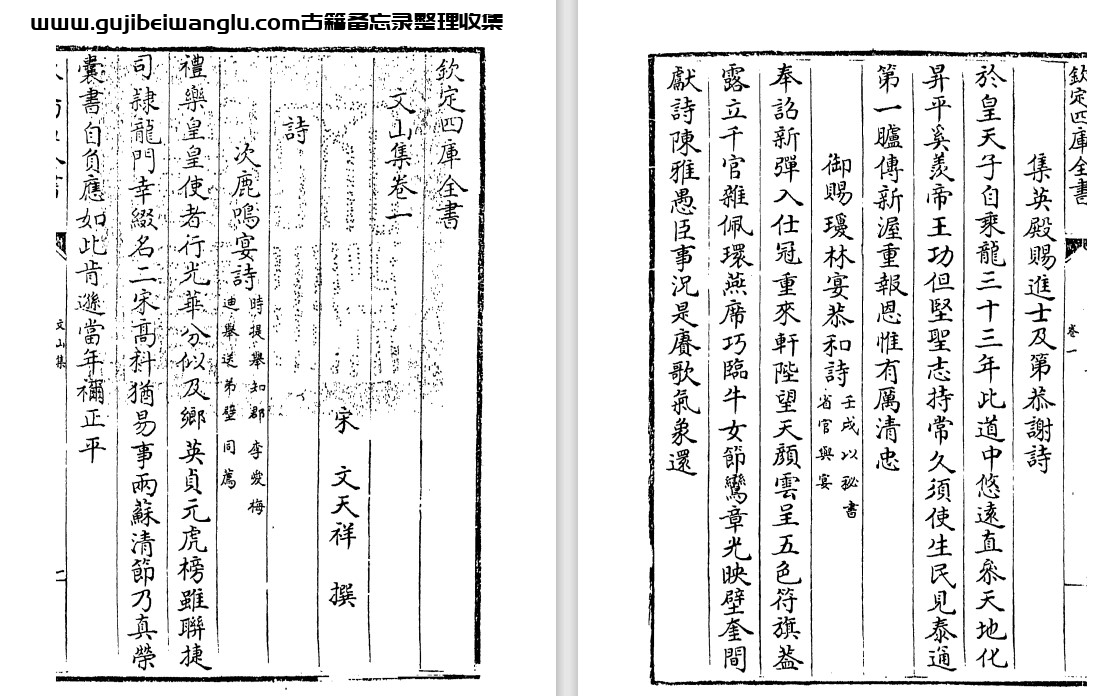 www.gujibeiwanglu.com古籍备忘录整理收集
欽定四庫全書
文山集卷一
宋 文天祥 撰
詩
次鹿鳴宴詩
時提舉知郡李愛梅
迪舉送弟璧同薦
禮樂皇皇使者行光華分似及鄉英貞元虎榜雖聯捷
司隸龍門幸綴名二宋高科猶易事兩蘇清節乃真榮
囊書自負應如此肯遜當年禰正平
文山集
一
欽定四庫全書
卷一
集英殿賜進士及第恭謝詩
於皇天子自乘龍三十三年此道中悠遠直叅天地化
昇平奚羨帝王功但堅聖志持常久須使生民見泰通
第一臚傳新渥重報恩惟有厲清忠
御賜瓊林宴恭和詩
壬戌以秘書
省官與宴
奉詔新彈入仕冠重來軒陛望天顔雲呈五色符旗蓋
露立千官雜佩環燕席巧臨牛女節鸞章光映壁奎間
獻詩陳雅愚臣事況是賡歌氣象還